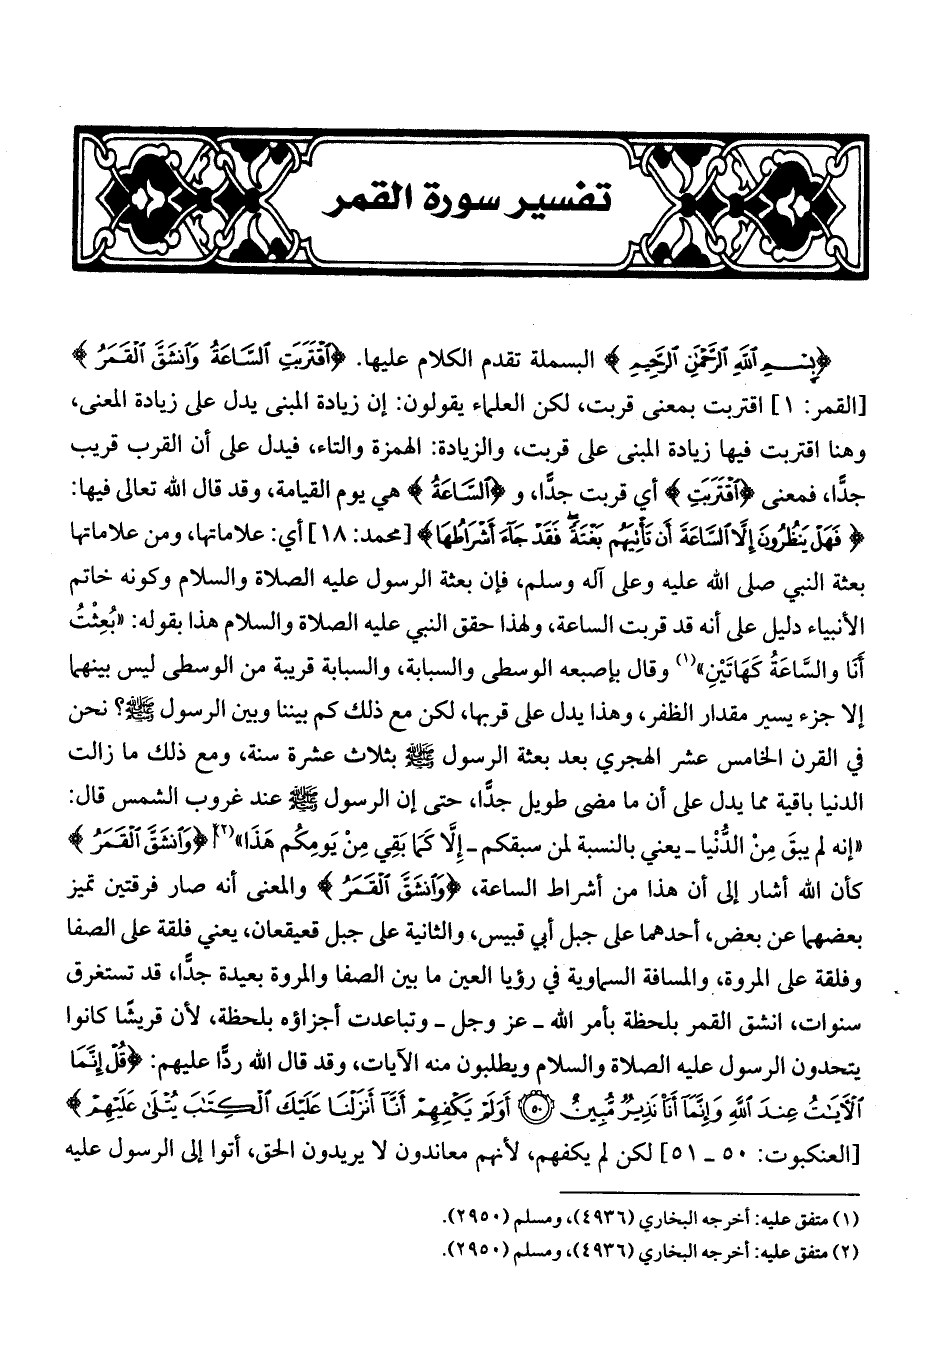 تفسير سورة القمر
﴿بِسْمِ ٱللَّهِ ٱلرَّحْمَٰنِ ٱلرَّحِيمِ﴾ البسملة تقدم الكلام عليها. ﴿ٱقْتَرَبَتِ ٱلسَّاعَةُ وَٱنشَقَّ ٱلْقَمَرُ﴾
[القمر: ١] اقتربت بمعنى قربت، لكن العلماء يقولون: إن زيادة المبنى يدل على زيادة المعنى،
وهنا اقتربت فيها زيادة المبنى على قربت، والزيادة: الهمزة والتاء، فيدل على أن القرب قريب
جدًّا، فمعنى ﴿ٱقْتَرَبَتِ﴾ أي قربت جدًّا، و ﴿ٱلسَّاعَةُ﴾ هي يوم القيامة، وقد قال الله تعالى فيها:
﴿فَهَلْ يَنظُرُونَ إِلَّا ٱلسَّاعَةَ أَن تَأْتِيَهُم بَغْتَةً ۖ فَقَدْ جَآءَ أَشْرَاطُهَا﴾ [محمد: ١٨] أي: علاماتها، ومن علاماتها
بعثة النبي صلى الله عليه وعلى آله وسلم، فإن بعثة الرسول عليه الصلاة والسلام وكونه خاتم
الأنبياء دليل على أنه قد قربت الساعة، ولهذا حقق النبي عليه الصلاة والسلام هذا بقوله: «بُعِثْتُ
أَنَا والسَّاعَةُ كَهَاتَيْنِ»(١) وقال بإصبعه الوسطى والسبابة، والسبابة قريبة من الوسطى ليس بينهما
إلا جزء يسير مقدار الظفر، وهذا يدل على قربها، لكن مع ذلك كم بيننا وبين الرسول ﷺ؟ نحن
في القرن الخامس عشر الهجري بعد بعثة الرسول ﷺ بثلاث عشرة سنة، ومع ذلك ما زالت
الدنيا باقية مما يدل على أن ما مضى طويل جدًّا، حتى إن الرسول ﷺ عند غروب الشمس قال:
«إنه لم يبقَ مِنْ الدُّنْيا ـ يعني بالنسبة لمن سبقكم ـ إِلَّا كَمَا بَقِي مِنْ يَومِكُم هَذَا»(٢) ﴿وَٱنشَقَّ ٱلْقَمَرُ﴾
كأن الله أشار إلى أن هذا من أشراط الساعة، ﴿وَٱنشَقَّ ٱلْقَمَرُ﴾ والمعنى أنه صار فرقتين تميز
بعضهما عن بعض، أحدهما على جبل أبي قبيس، والثانية على جبل قعيقعان، يعني فلقة على الصفا
وفلقة على المروة، والمسافة السماوية في رؤيا العين ما بين الصفا والمروة بعيدة جدًّا، قد تستغرق
سنوات، انشق القمر بلحظة بأمر الله ـ عز وجل ـ وتباعدت أجزاؤه بلحظة، لأن قريشًا كانوا
يتحدون الرسول عليه الصلاة والسلام ويطلبون منه الآيات، وقد قال الله ردًّا عليهم: ﴿قُلْ إِنَّمَا
ٱلْءَايَٰتُ عِندَ ٱللَّهِ وَإِنَّمَآ أَنَا۠ نَذِيرٌ مُّبِينٌ ۝٥٠ أَوَلَمْ يَكْفِهِمْ أَنَّآ أَنزَلْنَا عَلَيْكَ ٱلْكِتَٰبَ يُتْلَىٰ عَلَيْهِمْ﴾
[العنكبوت: ٥٠ ـ ٥١] لكن لم يكفهم، لأنهم معاندون لا يريدون الحق، أتوا إلى الرسول عليه
(١) متفق عليه: أخرجه البخاري (٤٩٣٦)، ومسلم (٢٩٥٠).
(٢) متفق عليه: أخرجه البخاري (٤٩٣٦)، ومسلم (٢٩٥٠).